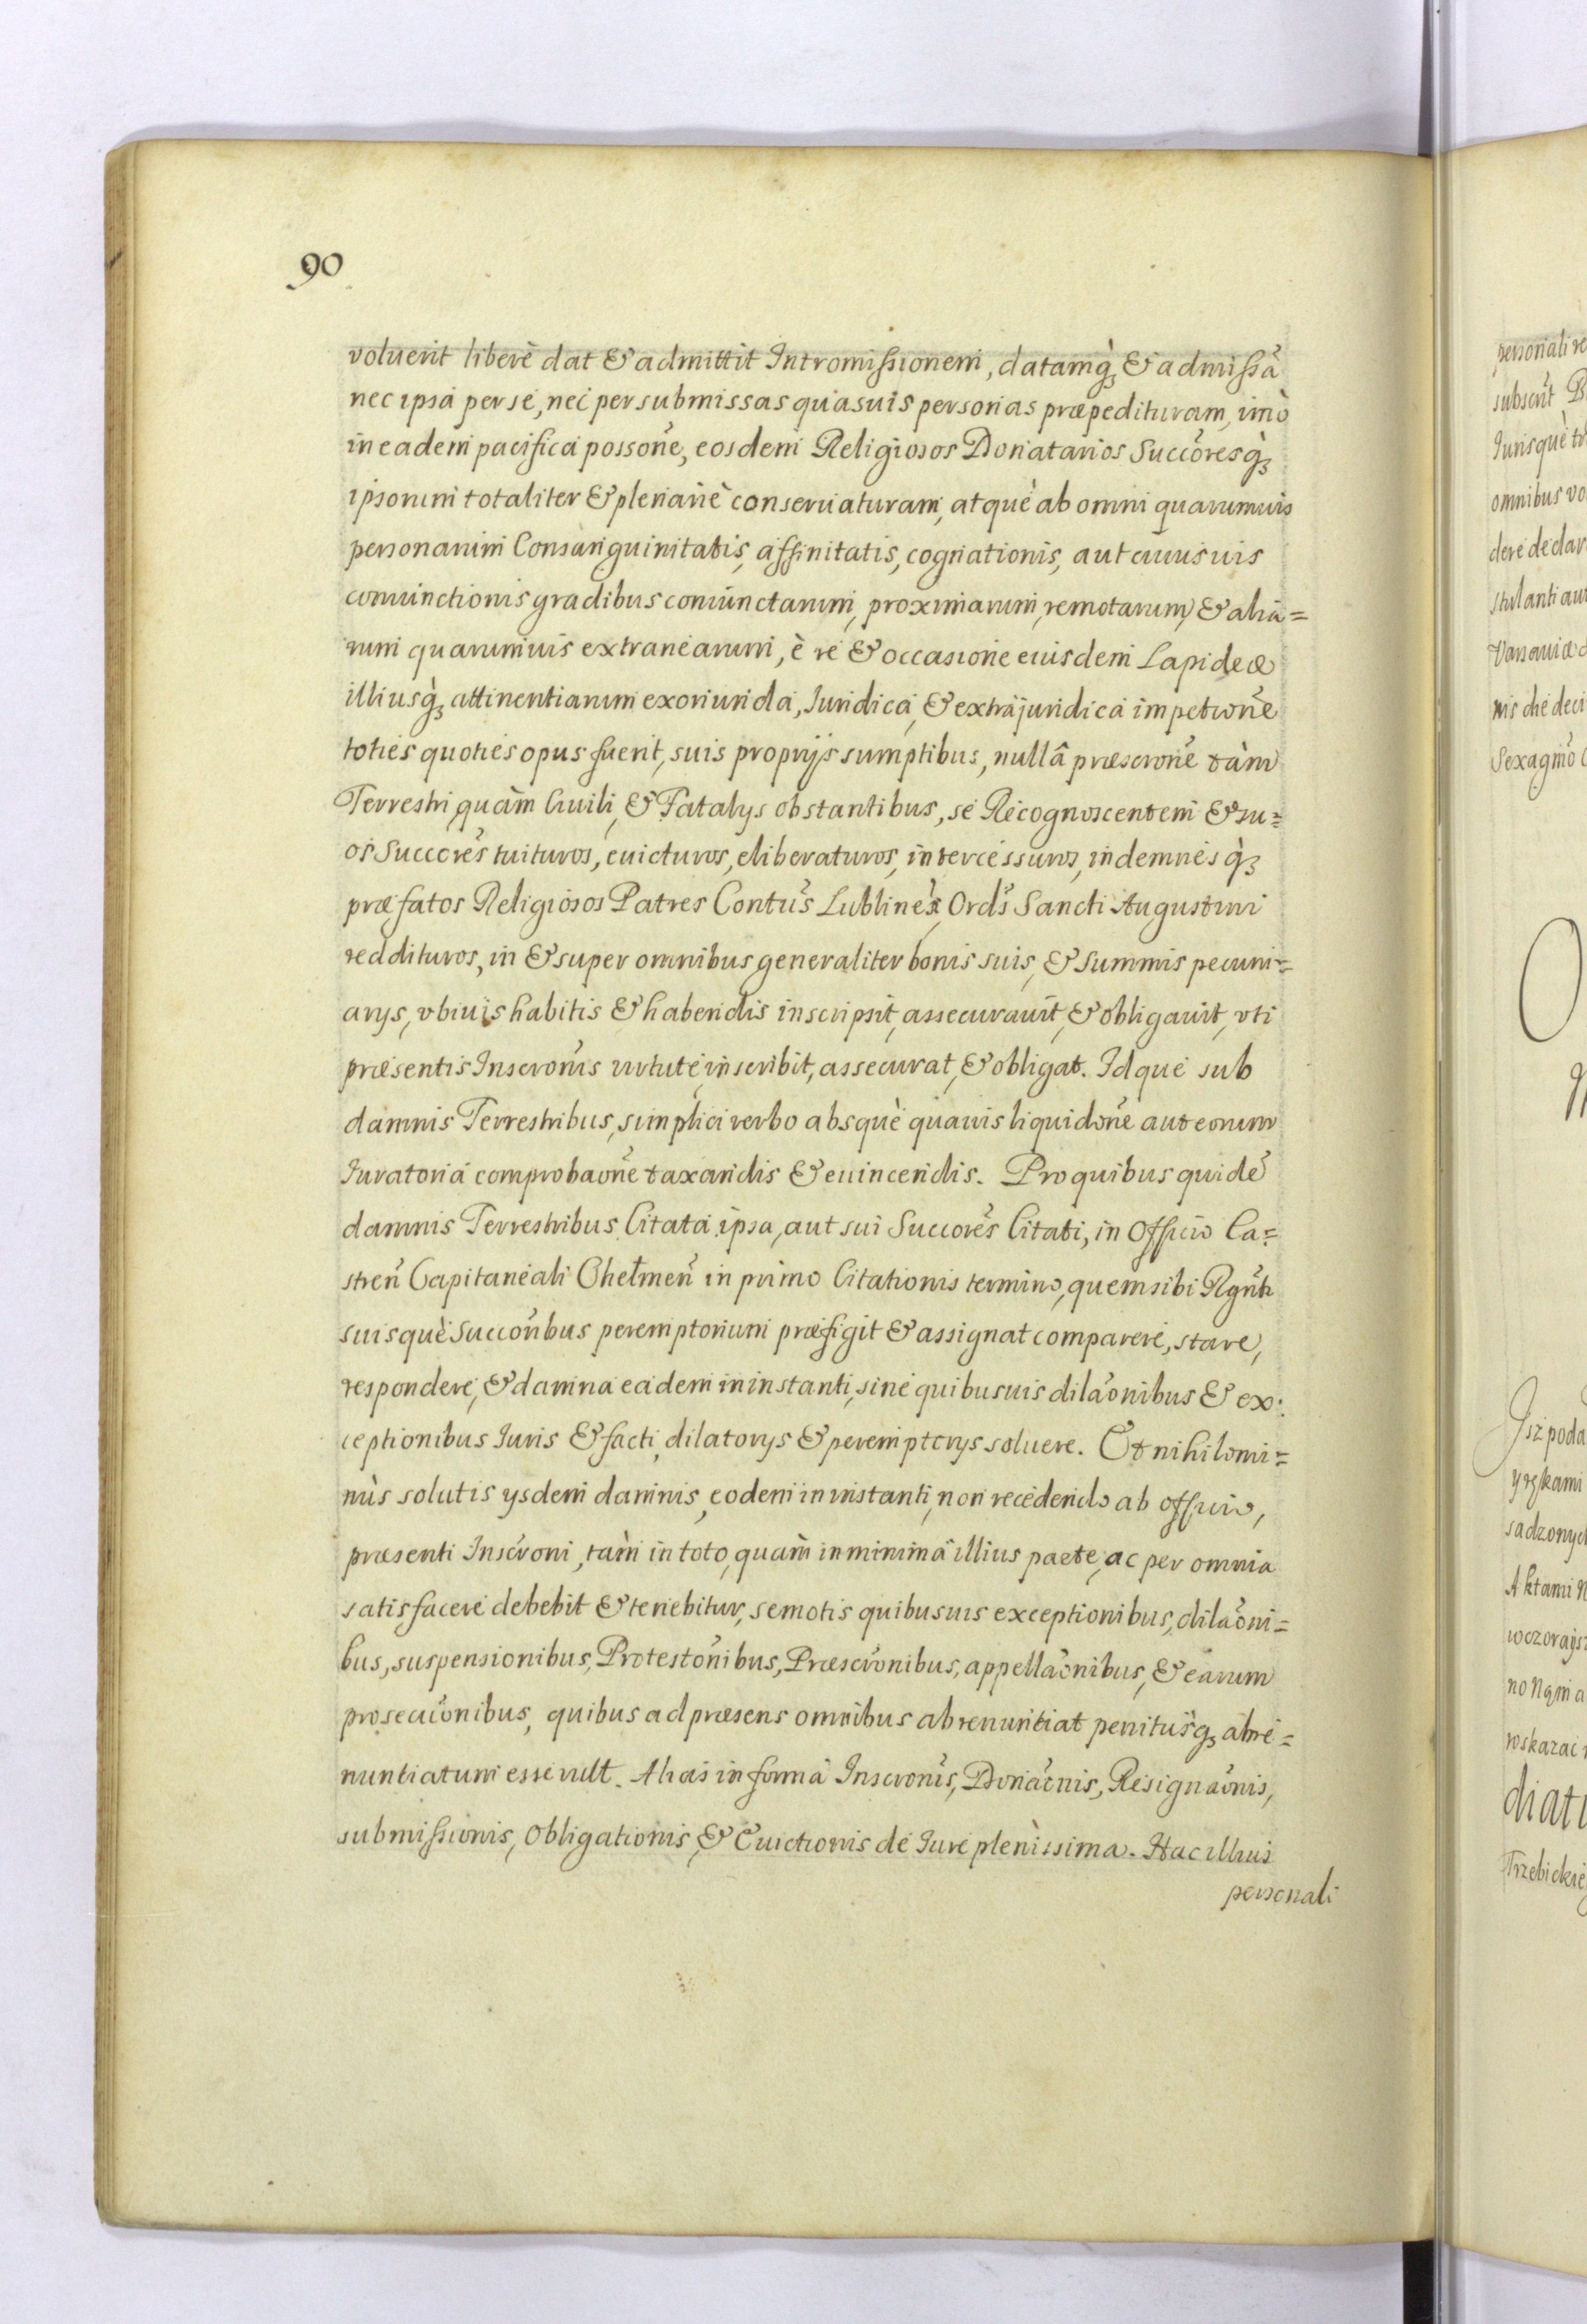 90
voluerit liberè dat & admittit Intromissionem, datamq̀₃ & admissã
nec ipsa per se, nec per submissas quasuis personas præpedituram, imò
in eadem pacifica possoñe, eosdem Religiosos Donatarios Succõresq̀₃
ipsorum totaliter & plenariè conseruaturam, atquè ab omni quarumuis
personarum Consanguinitatis, affinitatis, cognationis, aut cuiusuis
coniunctionis gradibus coniunctarum, proximarum, remotarum, & alia=
rum quarumuis extranearum, è re & occasione eiusdem Lapideæ
illiusq̀₃ attinentiarum exoriunda, Iuridica, & extrajuridica impetitoñe
toties quoties opus fuerit, suis proprijs sumptibus, nullâ præscroñe tàm
Terrestri quàm Ciuili, & Fatalys obstantibus, se Recognoscentem & su=
os Succcõres tuituros, euicturos, eliberaturos, intercessuros, indemnesq̀₃
præfatos Religiosos Patres Contũs Lublineñ, Ordĩs Sancti Augustini
reddituros, in & super omnibus generaliter bonis suis, & Summis pecuni=
arys, vbiuis habitis & habendis inscripsit, assecurauit, & obligauit, vti
præsentis Inscrõnis virtute, inscribit, assecurat, & obligat. Idque sub
damnis Terrestribus, simplici verbo absquè quauis liquidõne aut eorum
Iuratoria comprobaõne taxandis & euincendis. Pro quibus quidẽ
damnis Terrestribus Citata ipsa, aut sui Succorẽs Citati, in Officio Ca=
streñ Capitaneali Chełmeñ in primo Citationis termino, quem sibi Rgñti
suisquè Succoribus peremptorium præfigit & assignat comparere, stare,
respondere, & damna eadem in instanti, sine quibusuis dilaõnibus & ex:
ceptionibus Iuris & facti, dilatorys & peremptorys soluere. Et nihilomi=
nùs solutis ysdem damnis, eodem in instanti, non recedendo ab officio,
præsenti Inscrõni, tàm in toto, quàm in minima illius parte, ac per omnia
satisfacere debebit & tenebitur, semotis quibusuis exceptionibus, dilaõni=
bus, suspensionibus, Protestoñibus, Præscrõnibus, appellaõnibus, & earum
prosecuõnibus, quibus ad præsens omnibus abrenuntiat penitusq̀₃ abre=
nuntiatum esse vult. Alias in forma Inscronĩs, Donaõnis, Resignaõnis,
submissionis, Obligationis, & Euictionis de Iure plenissima. Hac illius
personali